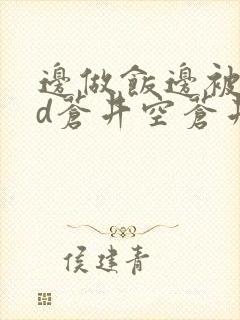 邊做飯邊被
d蒼井空蒼井
侯建青